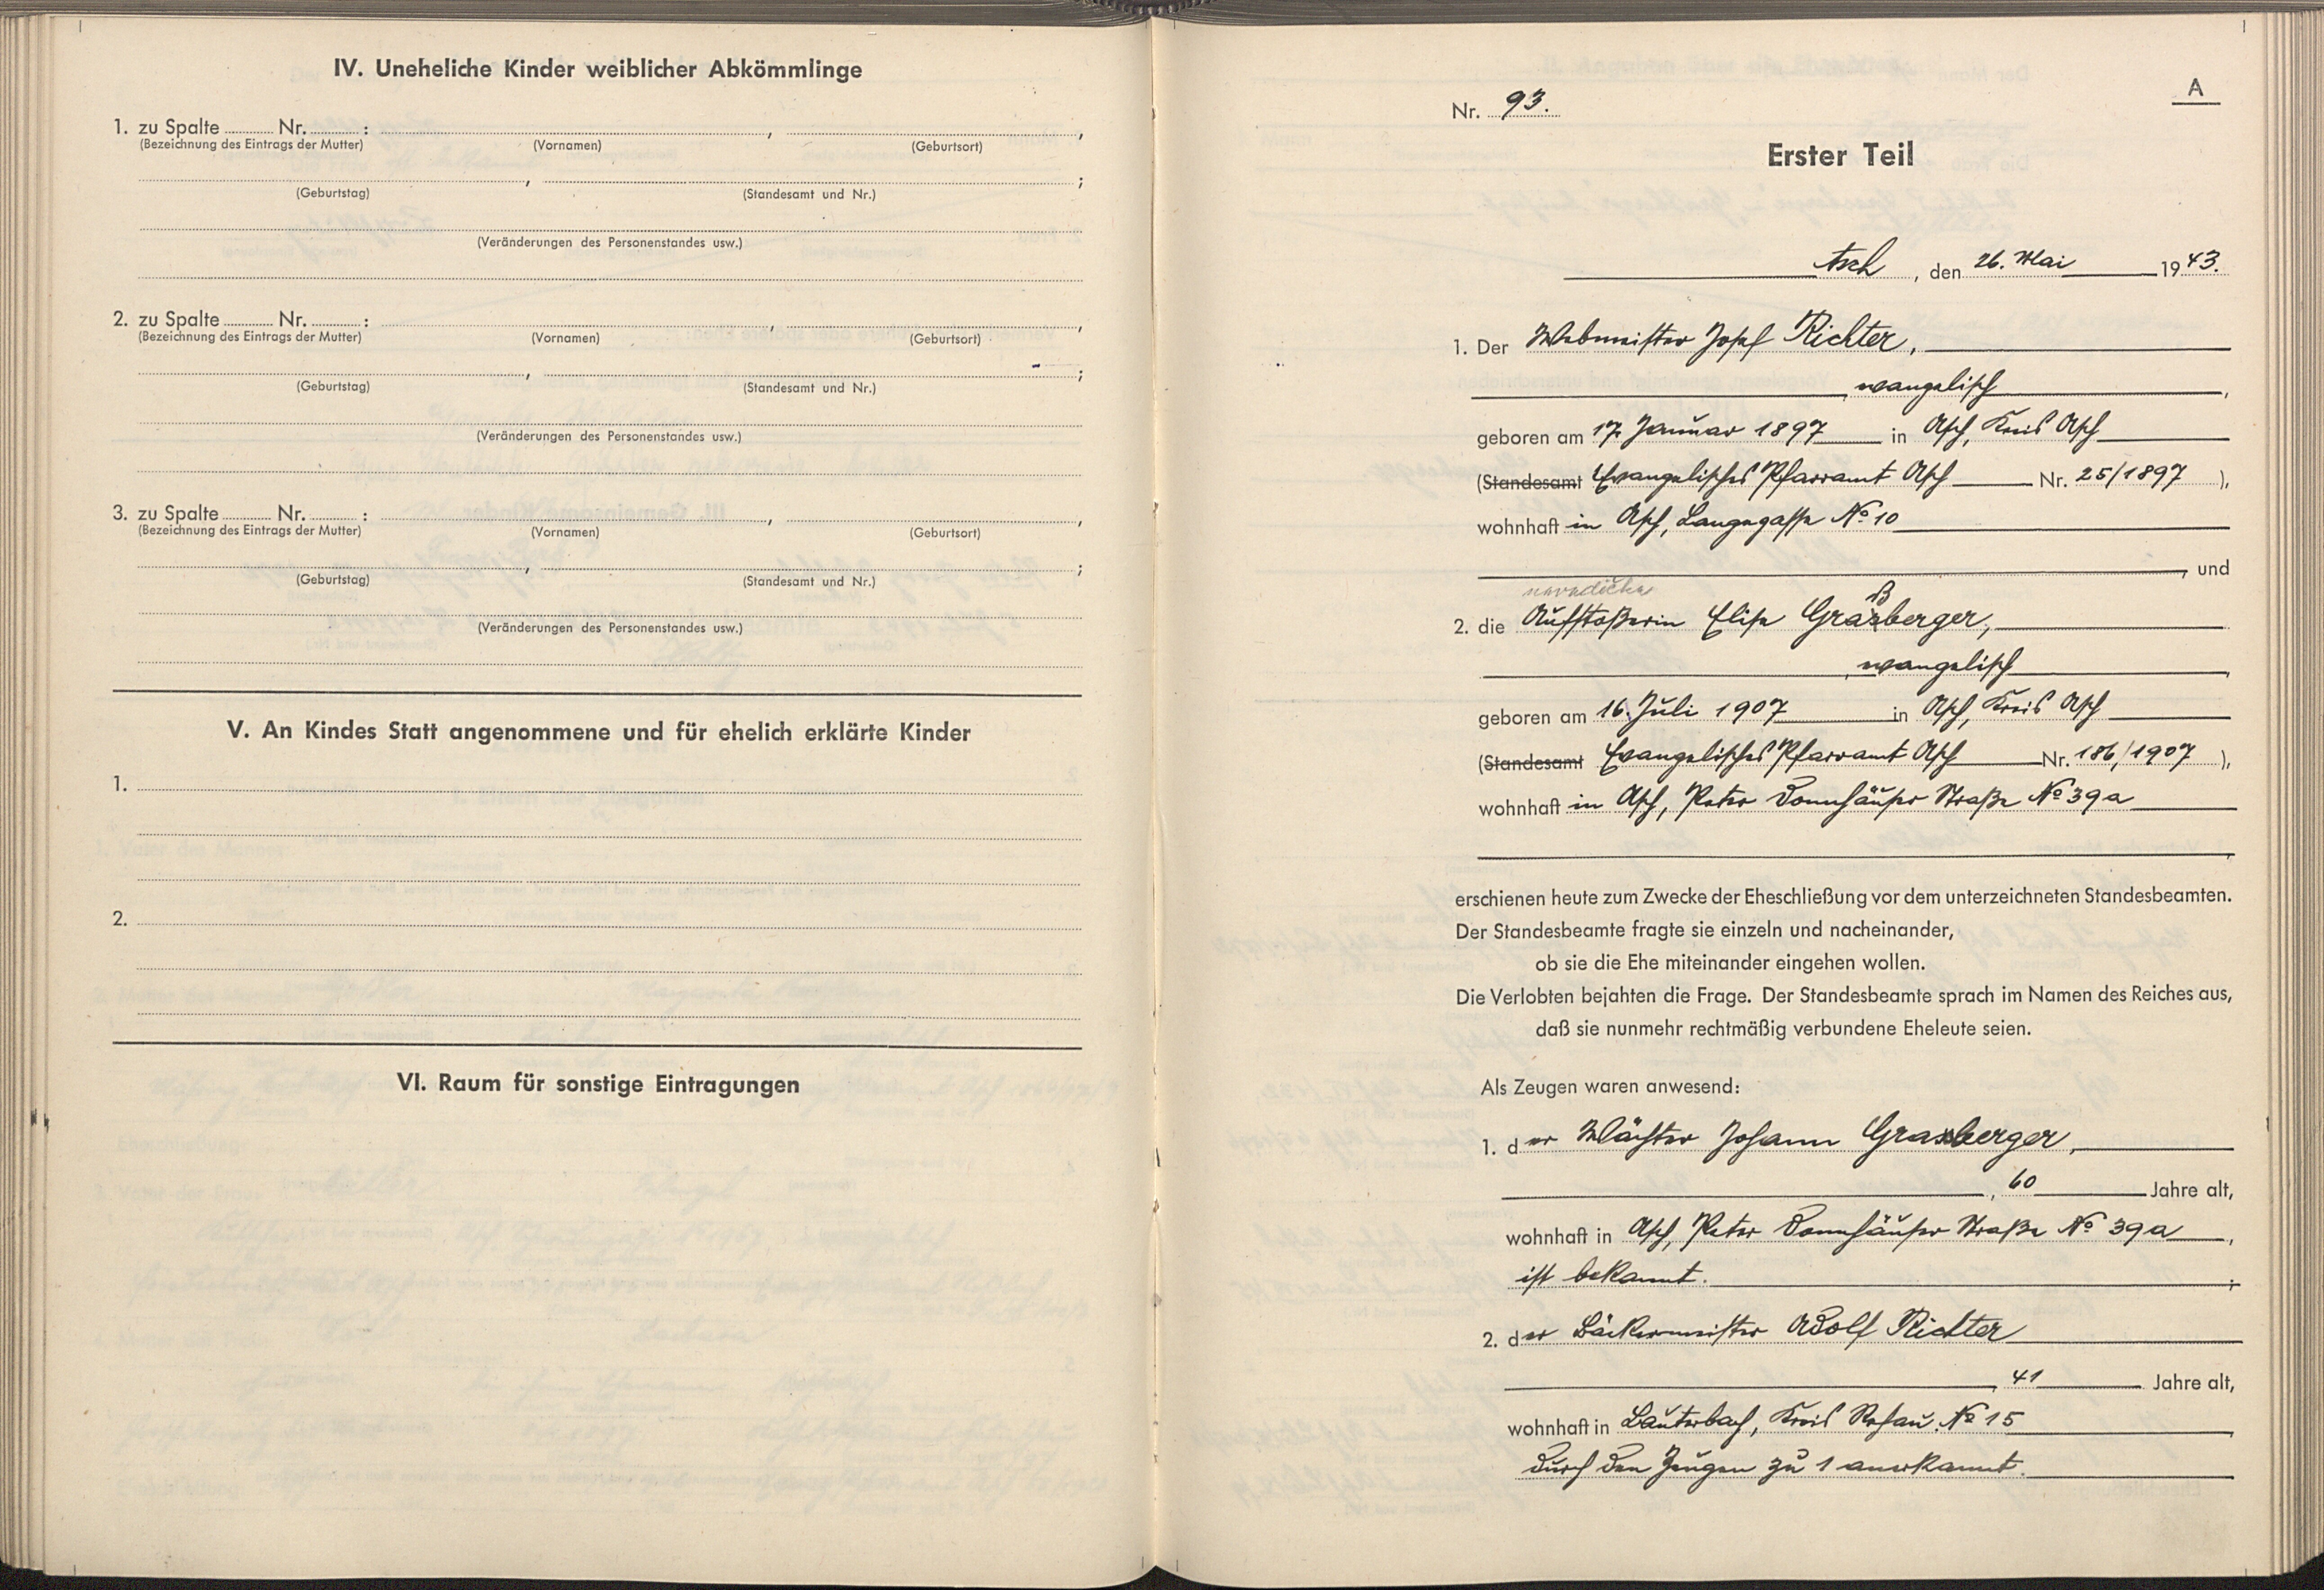 IV. Uneheliche Kinder weiblicher Abkömmlinge
1. zu Spalte ............ Nr. ............ : , ,
(Bezeichnung des Eintrags der Mutter) (Vornamen) (Geburtsort)
, ;
(Geburtstag) (Standesamt und Nr.)
(Veränderungen des Personenstandes usw.)
2. zu Spalte ............ Nr. ............ : , ,
(Bezeichnung des Eintrags der Mutter) (Vornamen) (Geburtsort)
, ;
(Geburtstag) (Standesamt und Nr.)
(Veränderungen des Personenstandes usw.)
3. zu Spalte ............ Nr. ............ : , ,
(Bezeichnung des Eintrags der Mutter) (Vornamen) (Geburtsort)
, ;
(Geburtstag) (Standesamt und Nr.)
(Veränderungen des Personenstandes usw.)
V. An Kindes Statt angenommene und für ehelich erklärte Kinder
1.
2.
VI. Raum für sonstige Eintragungen
A
Nr. 93.
Erster Teil
Asch, den 26. Mai 1943.
1. Der Webmeister Josef Richter,
, evangelisch,
geboren am 17. Januar 1897 in Asch, Kreis Asch
(Standesamt Evangelisches Pfarramt Asch Nr. 25/1897 ),
wohnhaft in Asch, Langegasse No 10
, und
navadečka
ß
2. die Aufstoßerin Elise Grasberger,
, evangelisch,
geboren am 16. Juli 1907 in Asch, Kreis Asch
(Standesamt Evangelisches Pfarramt Asch Nr. 186/1907 ),
wohnhaft in Asch, Peter Donnhäuser Straße No 39a
,
erschienen heute zum Zwecke der Eheschließung vor dem unterzeichneten Standesbeamten.
Der Standesbeamte fragte sie einzeln und nacheinander,
ob sie die Ehe miteinander eingehen wollen.
Die Verlobten bejahten die Frage. Der Standesbeamte sprach im Namen des Reiches aus,
daß sie nunmehr rechtmäßig verbundene Eheleute seien.
Als Zeugen waren anwesend:
1. der Wächter Johann Grasberger,
, 60 Jahre alt,
wohnhaft in Asch, Peter Donnhäuser Straße No 39a,
ist bekannt. ;
2. der Bäckermeister Adolf Richter
, 41 Jahre alt,
wohnhaft in Lauterbach, Kreis Rehau, No 15,
durch den Zeugen zu 1 anerkannt.